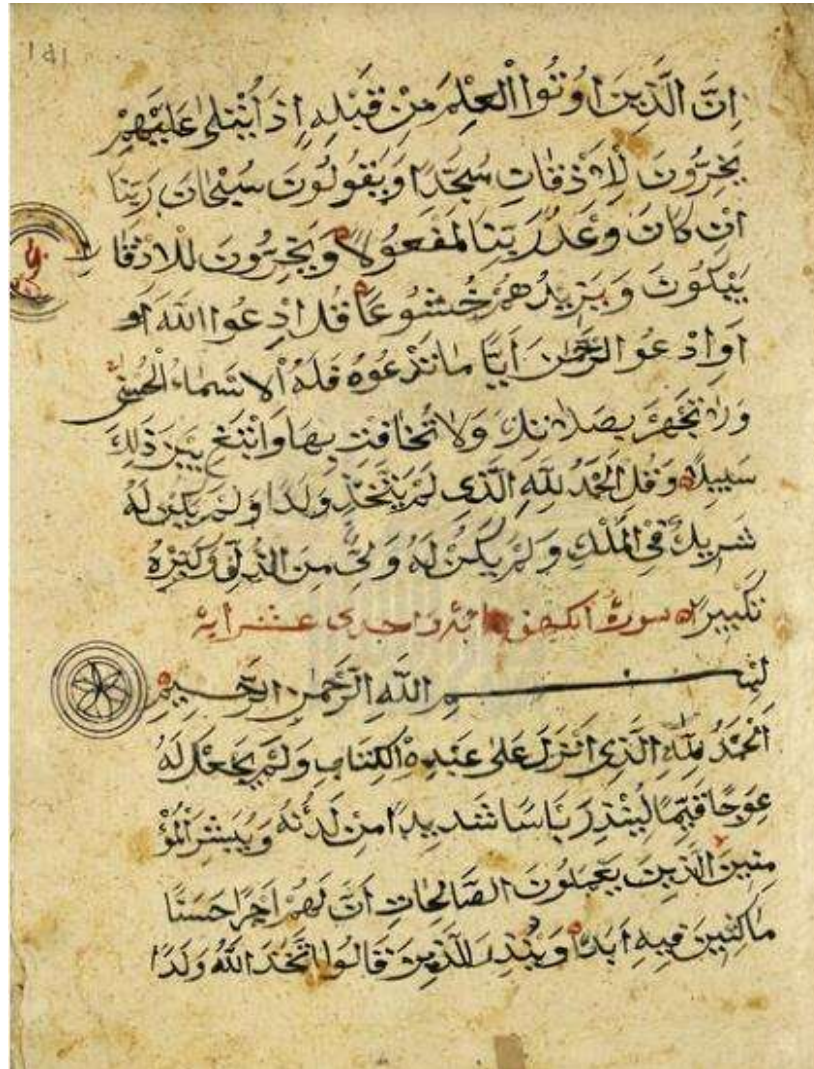 ١٤١
اِنَّ الَّذِينَ اُوتُوا الْعِلْمَ مِنْ قَبْلِهِ اِذَا يُتْلٰى عَلَيْهِمْ
يَخِرُّونَ لِلْاَذْقَانِ سُجَّدًا وَيَقُولُونَ سُبْحَانَ رَبِّنَا
اِنْ كَانَ وَعْدُ رَبِّنَا لَمَفْعُولًا وَيَخِرُّونَ لِلْاَذْقَانِ
يَبْكُونَ وَيَزِيدُهُمْ خُشُوعًا قُلِ ادْعُوا اللّٰهَ اَوِ
اَوِ ادْعُوا الرَّحْمٰنَ اَيًّا مَا تَدْعُوهُ فَلَهُ الْاَسْمَاءُ الْحُسْنٰى
وَلَا تَجْهَرْ بِصَلَاتِكَ وَلَا تُخَافِتْ بِهَا وَابْتَغِ بَيْنَ ذٰلِكَ
سَبِيلًا وَقُلِ الْحَمْدُ لِلّٰهِ الَّذِي لَمْ يَتَّخِذْ وَلَدًا وَلَمْ يَكُنْ لَهُ
شَرِيكٌ فِي الْمُلْكِ وَلَمْ يَكُنْ لَهُ وَلِيٌّ مِنَ الذُّلِّ وَكَبِّرْهُ
تَكْبِيرًا سورة الكهف مائة واحدى عشر اية
بِسْمِ اللّٰهِ الرَّحْمٰنِ الرَّحِيمِ
اَلْحَمْدُ لِلّٰهِ الَّذِي اَنْزَلَ عَلٰى عَبْدِهِ الْكِتَابَ وَلَمْ يَجْعَلْ لَهُ
عِوَجًا قَيِّمًا لِيُنْذِرَ بَاْسًا شَدِيدًا مِنْ لَدُنْهُ وَيُبَشِّرَ الْمُؤْ
مِنِينَ الَّذِينَ يَعْمَلُونَ الصَّالِحَاتِ اَنَّ لَهُمْ اَجْرًا حَسَنًا
مَاكِثِينَ فِيهِ اَبَدًا وَيُنْذِرَ الَّذِينَ قَالُوا اتَّخَذَ اللّٰهُ وَلَدًا